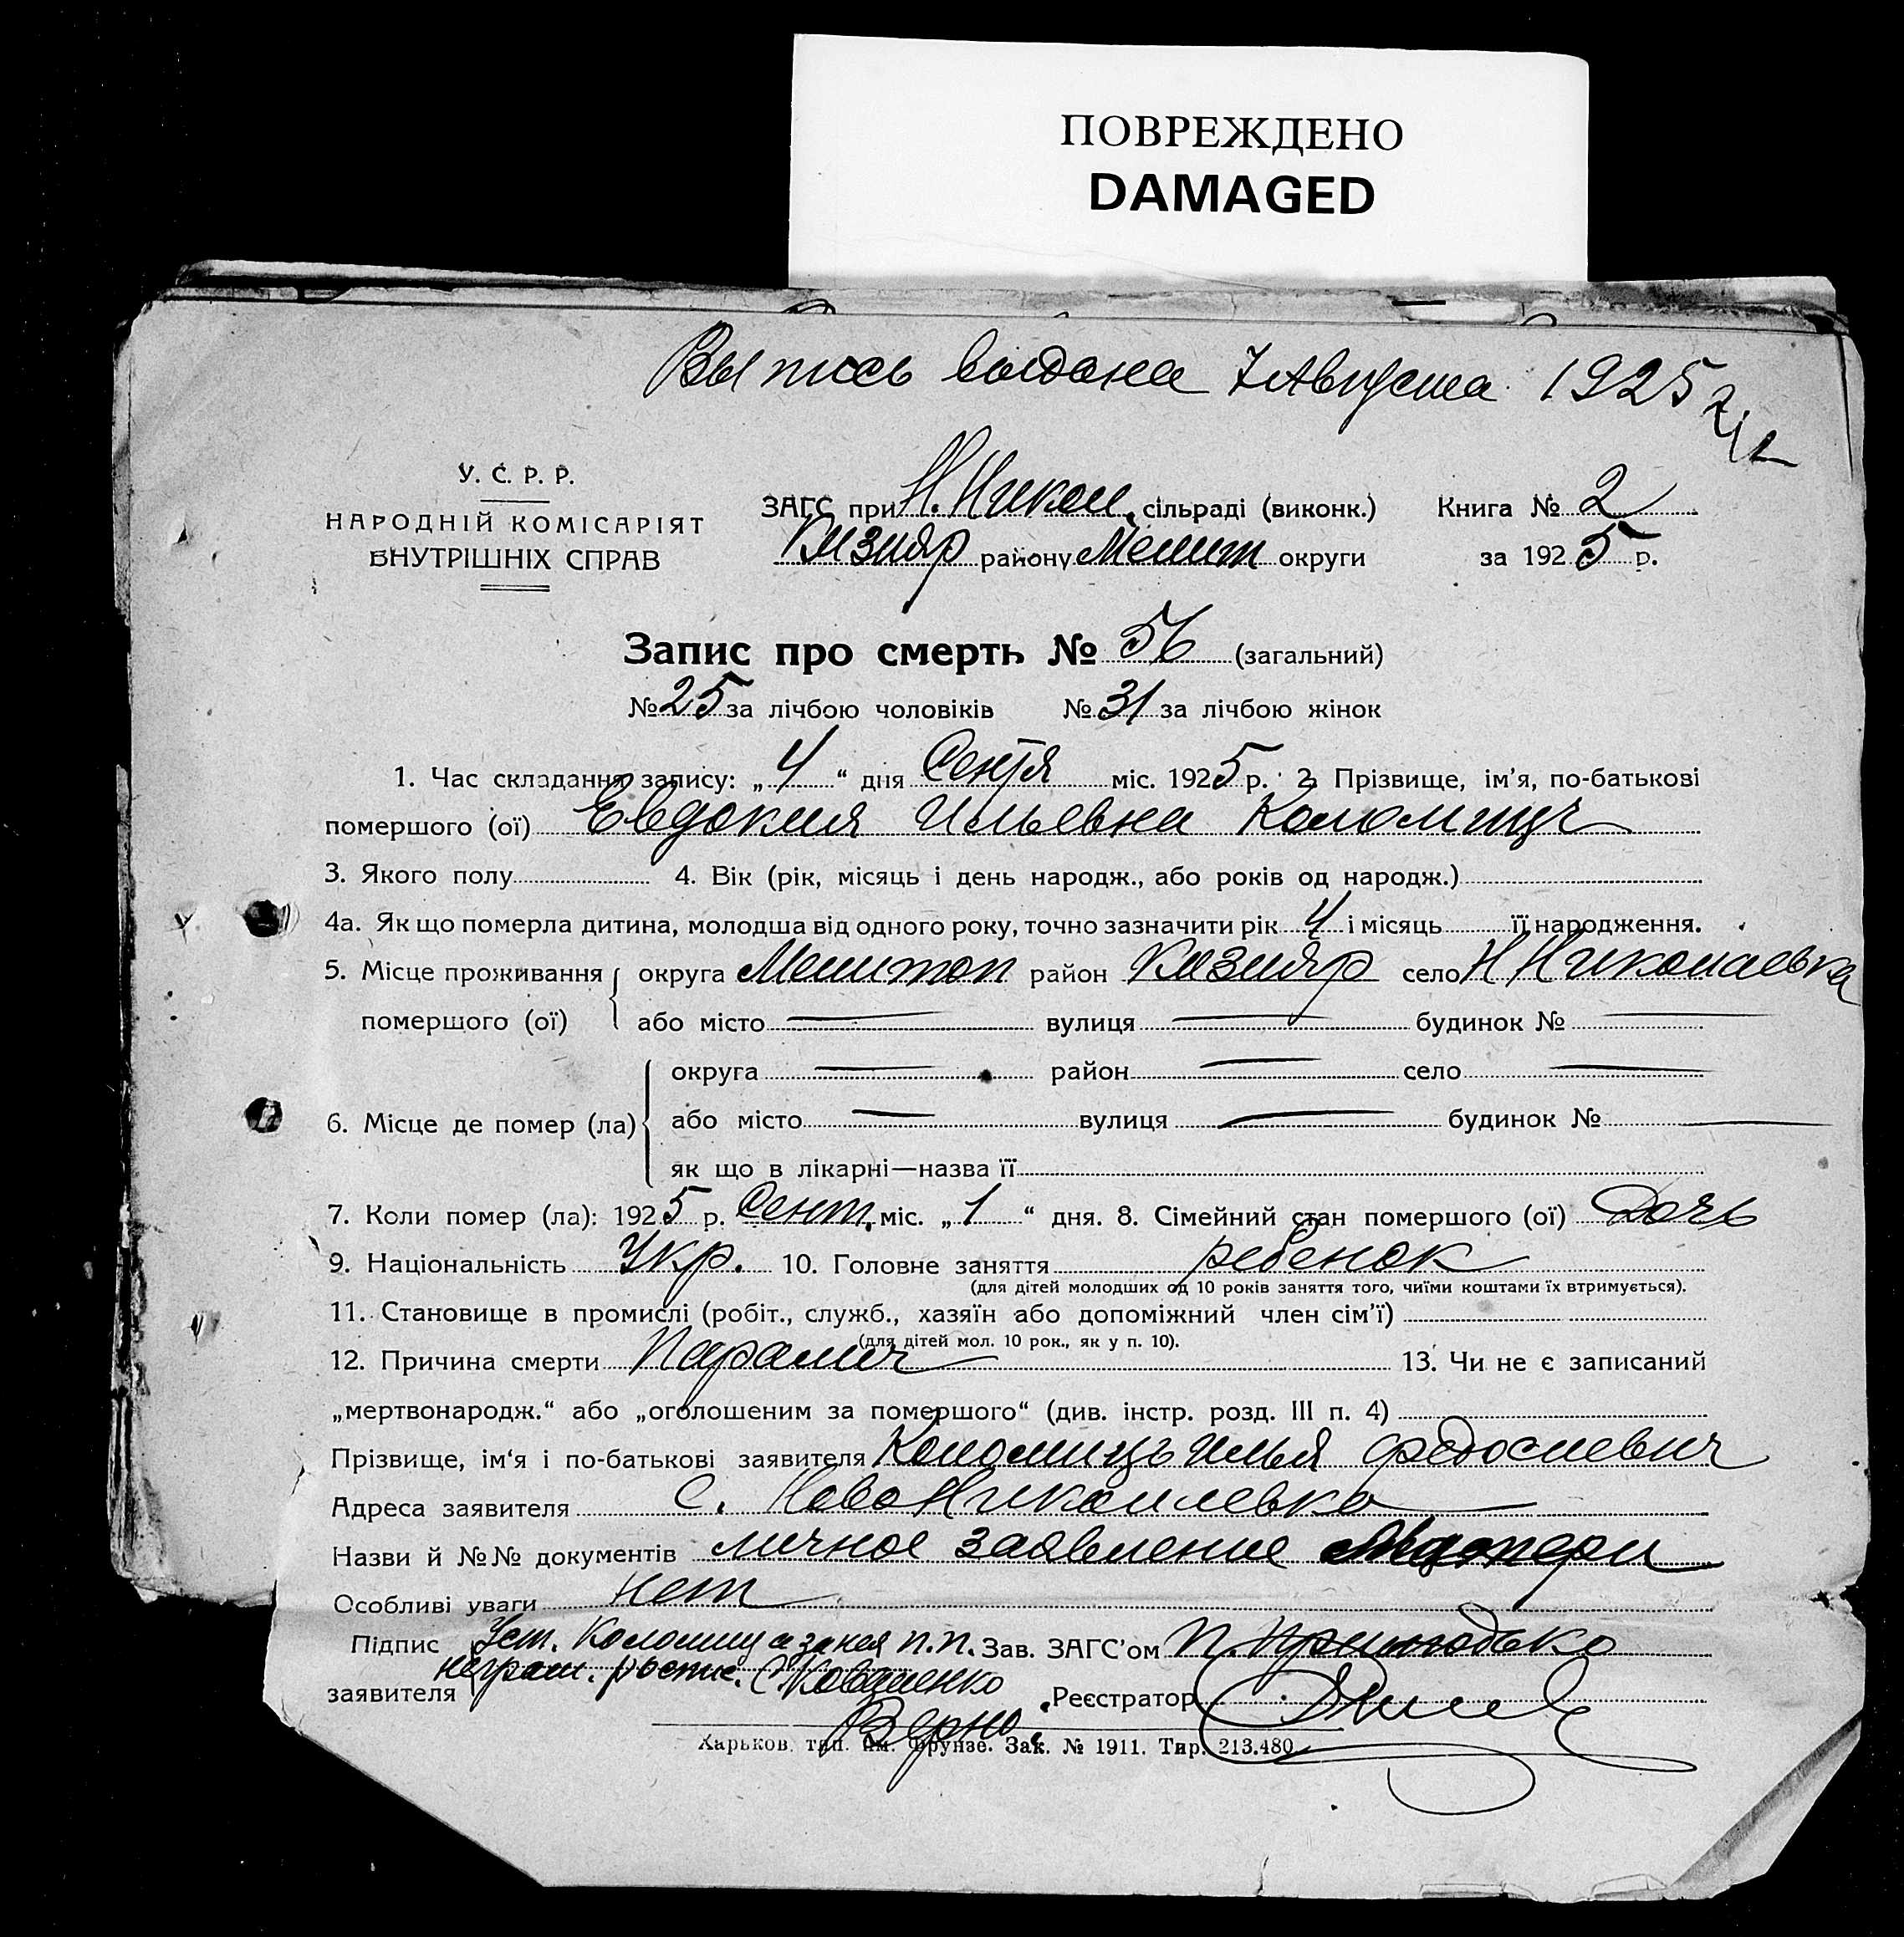 ПОВРЕЖДЕНО
DAMAGED
Выпись выдана 7 Августа 1925 г.
У. С. Р. Р.
НАРОДНІЙ КОМІСАРІЯТ
ВНУТРІШНІХ СПРАВ
ЗАГС при Н. Никол. сільраді (виконк.) Книга № 2
Кизияр району Мелит округи за 1925 р.
Запис про смерть № 56 (загальний)
№ 25 за лічбою чоловіків № 31 за лічбою жінок
1. Час складання запису: „4“ дня Сентя міс. 1925 р. 2. Прізвище, ім’я, по-батькові
помершого (ої) Евдокия Ильевна Коломиец
3. Якого полу 4. Вік (рік, місяць і день народж., або років од народж.)
4а. Як що померла дитина, молодша від одного року, точно зазначити рік 4 і місяць її народження.
5. Місце проживання округа Мелитоп район Кизияр село Н Николаевка
помершого (ої) або місто — вулиця — будинок № —
округа — район — село —
6. Місце де помер (ла) або місто — вулиця — будинок № —
як що в лікарні—назва її
7. Коли помер (ла): 1925 р. Сент. міс. „1“ дня. 8. Сімейний стан помершого (ої) Дочь
9. Національність Укр. 10. Головне заняття ребенок
(для дітей молодших од 10 років заняття того, чиїми коштами їх втримується).
11. Становище в промислі (робіт., служб., хазяїн або допоміжний член сім’ї)
(для дітей мол. 10 рок., як у п. 10).
12. Причина смерти Паралич 13. Чи не є записаний
„мертвонародж.“ або „оголошеним за помершого“ (див. інстр. розд. III п. 4)
Прізвище, ім‘я і по-батькові заявителя Коломиць Илья Федосиевич
Адреса заявителя с. НовоНиколаевка
Назви й №№ документів личное заявление
Особливі уваги нет
Підпис Коломиец а за нея п.п. Зав. ЗАГС’ом П. Приходько
неграм. роспис. Коваленко
заявителя Реєстратор
Верно:
Харьков. тип. им. Фрунзе. Зак. № 1911. Тир. 213.480